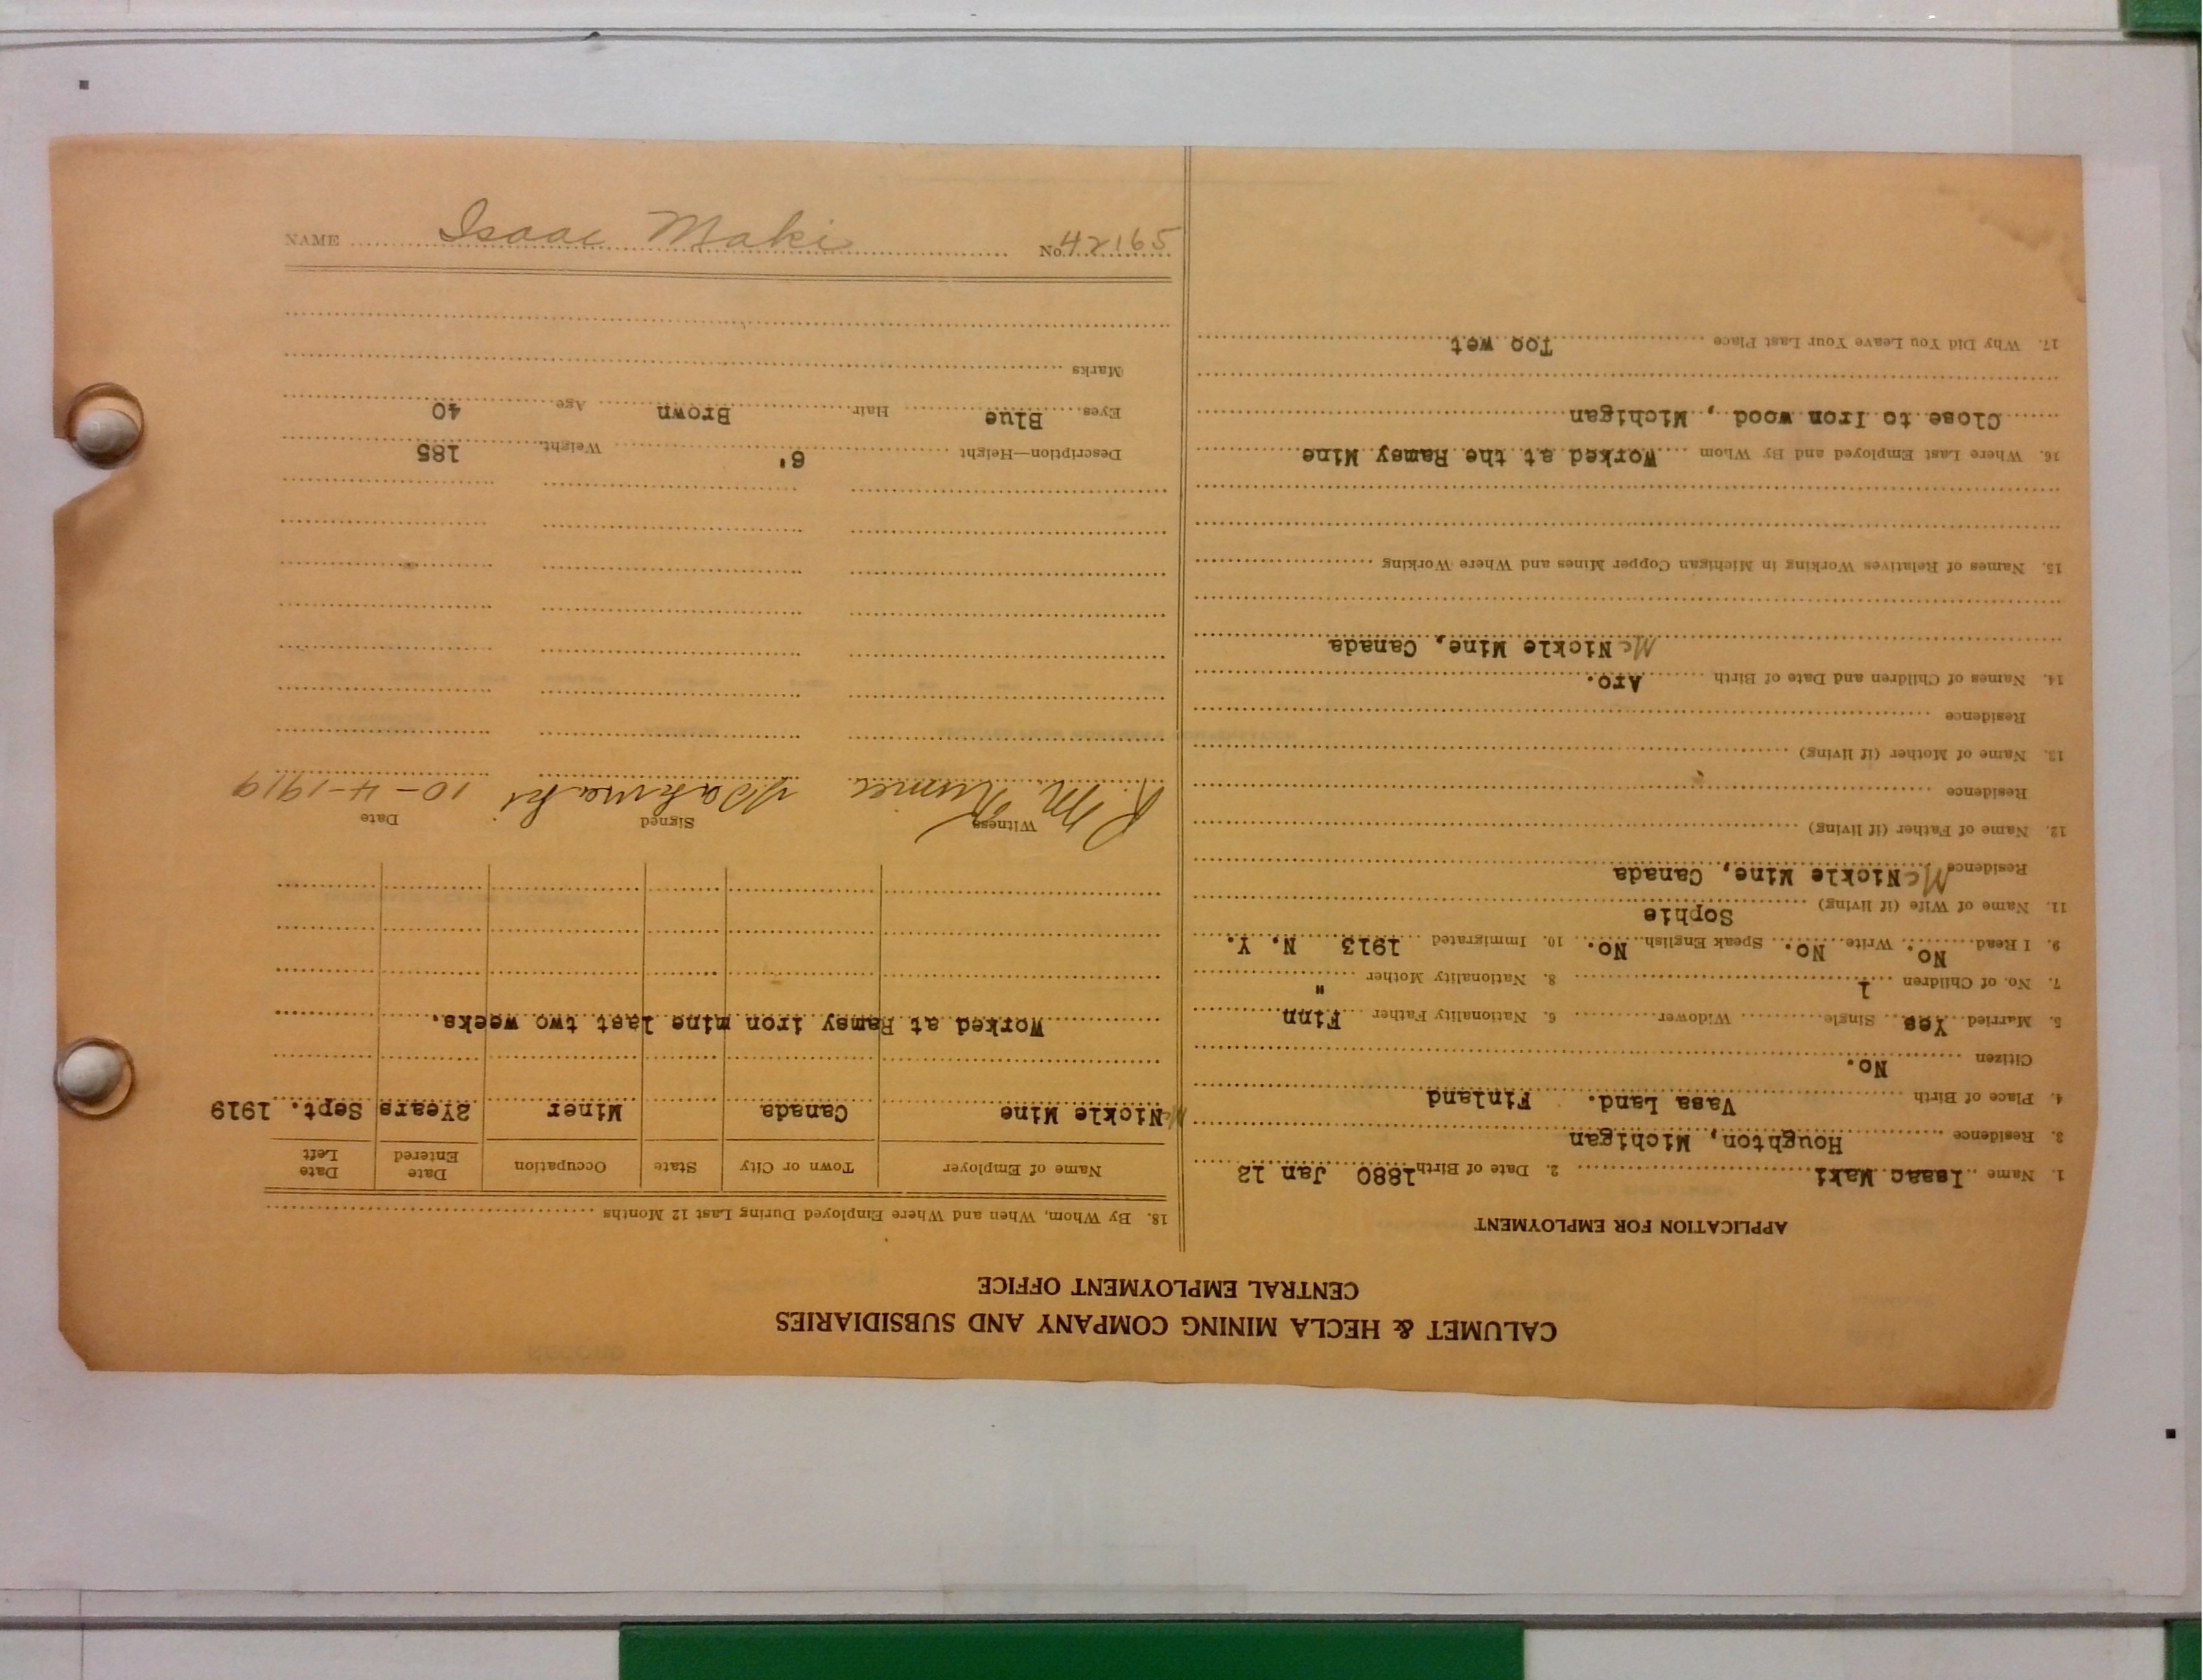 CALUMET & HECLA MINING COMPANY AND SUBSIDIARIES
CENTRAL EMPLOYMENT OFFICE
APPLICATION FOR EMPLOYMENT
1. Name Isaac Maki 2. Date of Birth 1880 Jan 12
3. Residence Houghton, Michigan
4. Place of Birth Vasa Land. Finland
Citizen No.
5. Married Yes Single Widower 6. Nationality Father Finn
7. No. of Children 1 8. Nationality Mother "
9. I Read No. Write No. Speak English No. 10. Immigrated 1913 N. Y.
11. Name of Wife (if living) Sophie
Residence McNickle Mine, Canada
12. Name of Father (if living)
Residence
13. Name of Mother (if living)
Residence
14. Names of Children and Date of Birth Aro.
McNickle Mine, Canada
15. Names of Relatives Working in Michigan Copper Mines and Where Working
16. Where Last Employed and By Whom Worked at the Ramsy Mine
Close to Iron wood, Michigan
17. Why Did You Leave Your Last Place Too wet
18. By Whom, When and Where Employed During Last 12 Months
Name of Employer Town or City State Occupation Date Entered Date Left
McNickle Mine Canada Miner 2Years Sept. 1919
Worked at Ramsy iron mine last two weeks.
Witness Signed Date
R. M. 10-4-1919
Description—Height 6' Weight 185
Eyes Blue Hair Brown Age 40
Marks
NAME Isaac Maki No. 42165